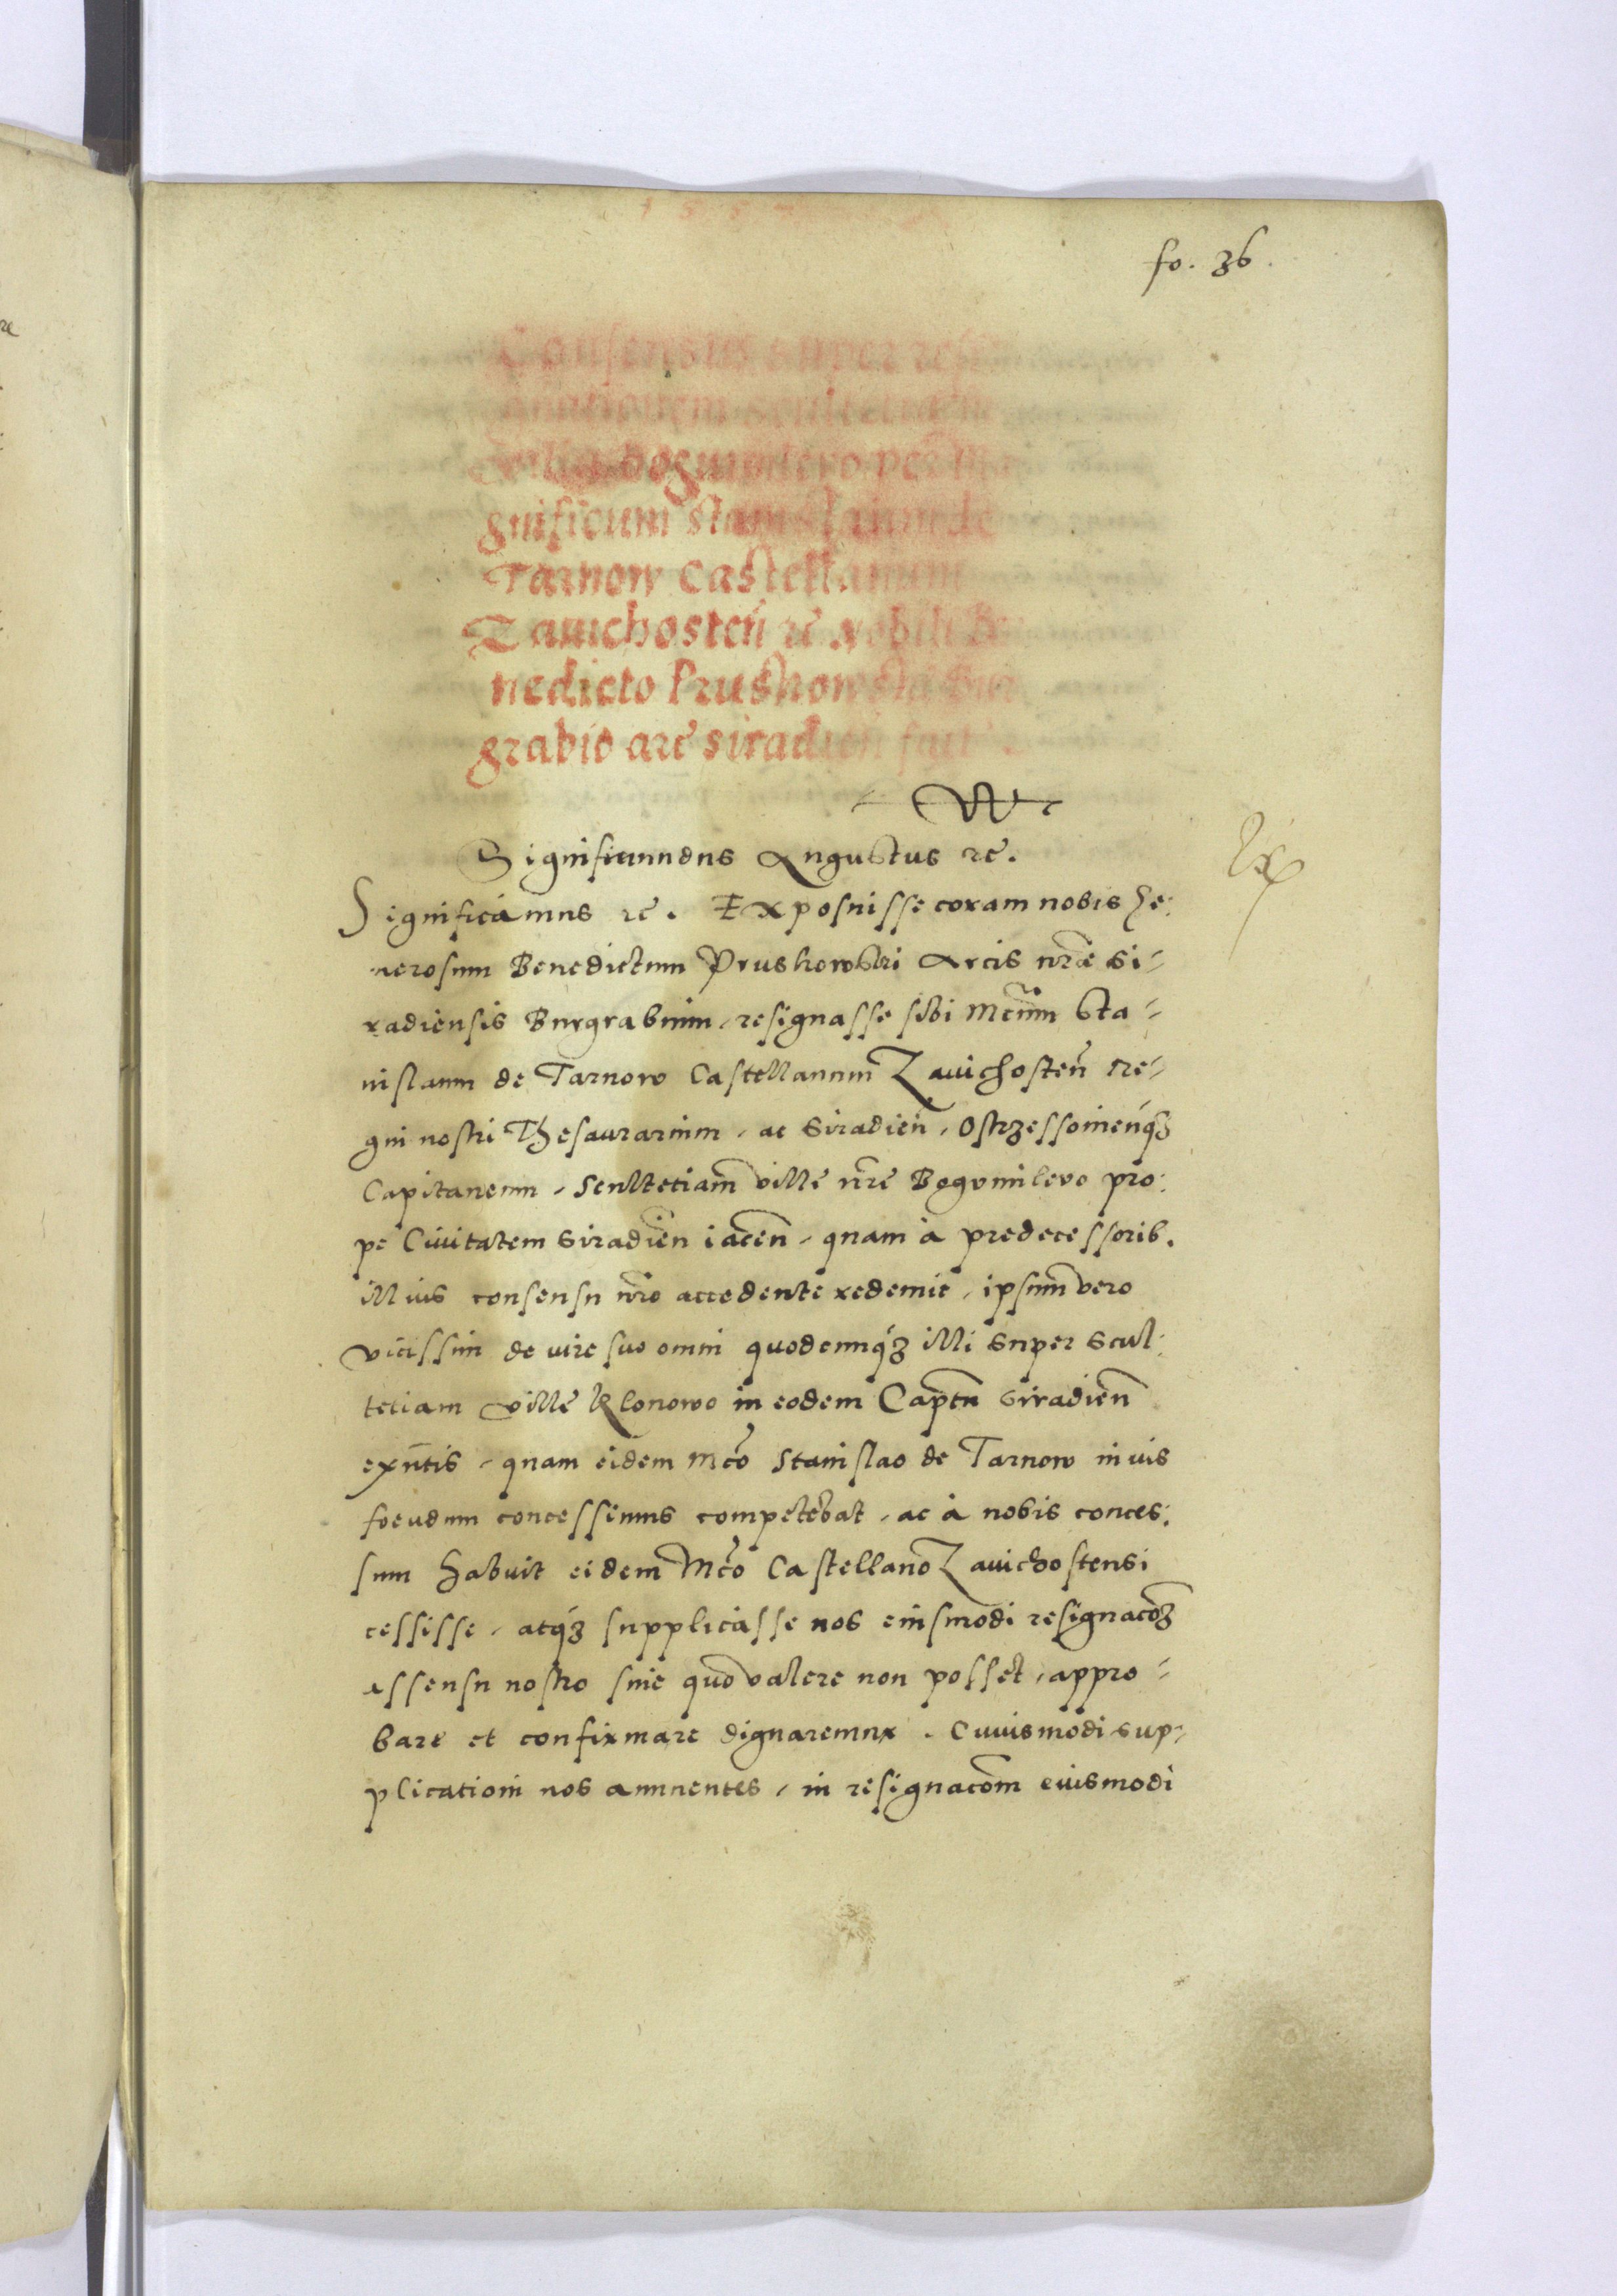 fo. 36.
Consensus super resi
gnationem scultetiae in
villa Bogumilevo per Ma
gnificum Stanislaum de
Tarnow Castellanum
Zauichosten̄ rc̄ Nobili Be
nedicto Prushowski Bur
grabio arc̄ siradien̄ fact
Sigismundus Augustus rc.
Significamus rc. Exposuisse coram nobis Ge:
nerosum Benedictum Prushowski Arcis nr̄ae Si=
radiensis Burgrabium, resignasse sibi Mcūm Sta=
nislaum de Tarnow Castellanum Zauichosten̄ Re=
gni nostri Thesaurarium, ac Siradien̄, Ostrzessouien̄q3
Capitaneum, Scultetiam̄ ville nr̄e Bogumilevo pro:
pe Ciuitatem Siradien̄ iacen̄, quam à predecessorib.
illius consensu nr̄o accedente redemit, ipsum̄ vero
vicissim de iure suo omni quodcunq3 illi super Scul:
tetiam ville Klonowo in eodem Captn̄ Siradien̄
exn̄tis, quam eidem Mc̄o Stanislao de Tarnow in ius
foeudum concessimus competebat, ac à nobis conces:
sum habuit eidem Mc̄o Castellano Zauichostensi
cessisse, atq3 supplicasse nos eiusmodi resignacō3
assensu nostro sine quo valere non posset, appro=
bare et confirmare dignaremur. Cuiusmodi sup=
plicationi nos annuentes, in resignacōm eiusmodi